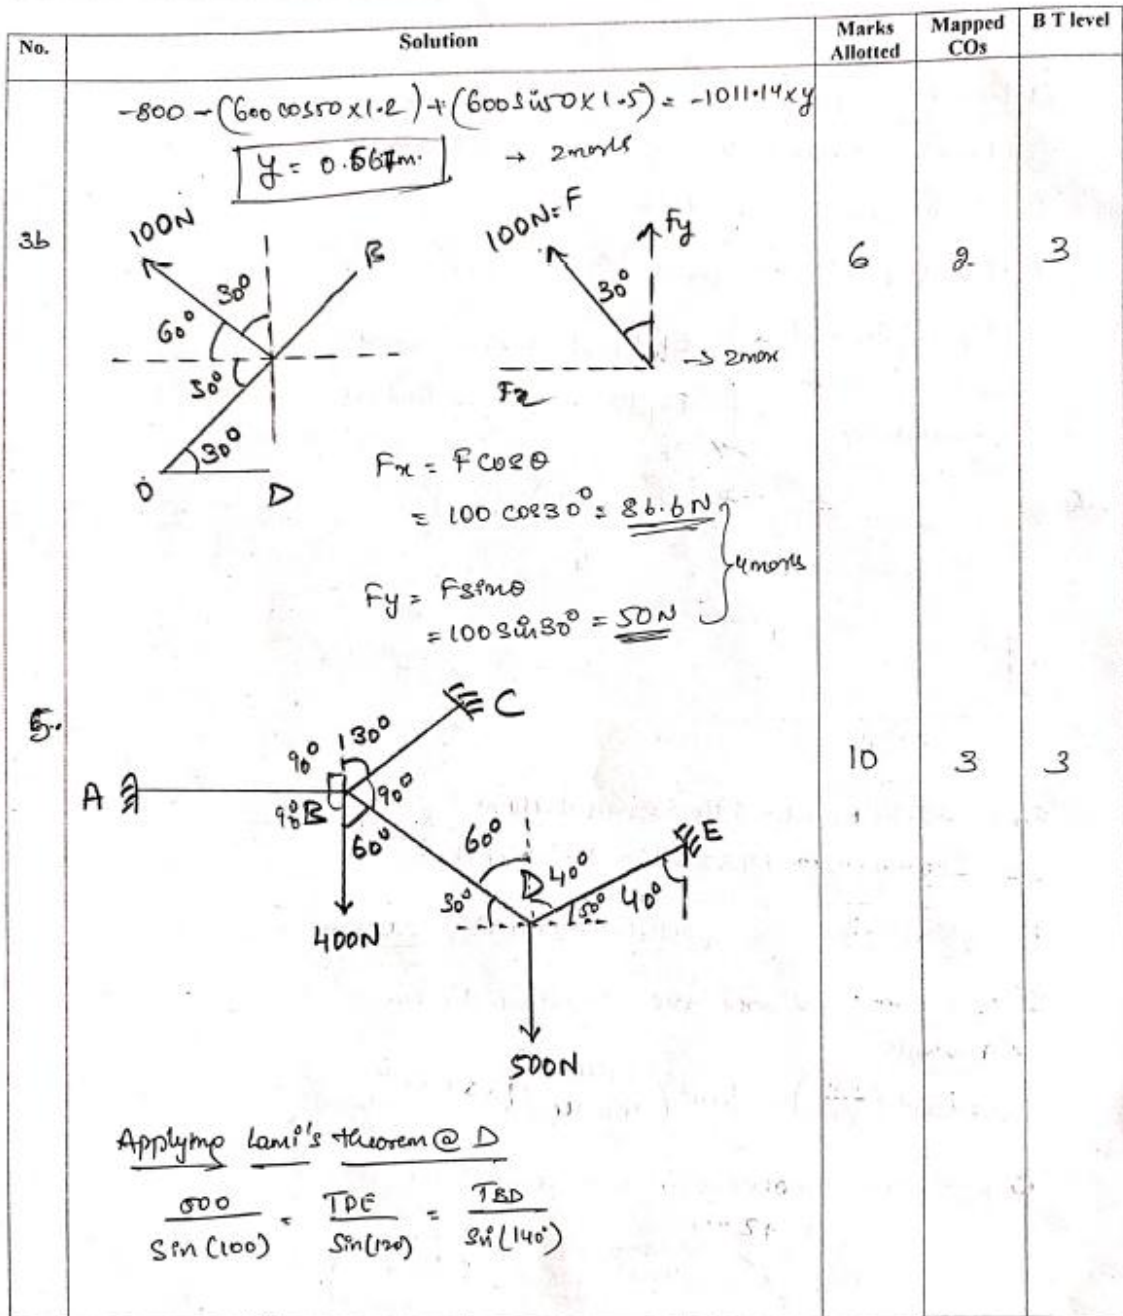 No. Solution Marks Allotted Mapped COs B T level
-800 - (600 cos50 x 1.2) + (600 sin50 x 1.5) = -1011.14 x y
y = 0.567m. → 2marks
3b 6 2 3
100N 30° 60° B
30° 30° O D
100N = F Fy 30° Fx → 2mar
Fx = F cosθ
= 100 cos30° = 86.6N
4marks
Fy = Fsinθ
= 100 sin30° = 50N
5. 10 3 3
C
90° 30°
A 90° B 90°
60° 60° E
30° D 40° 50° 40°
400N
500N
Applying Lami's theorem @ D
500 / Sin(100) = TDE / Sin(120) = TBD / Sin(140°)